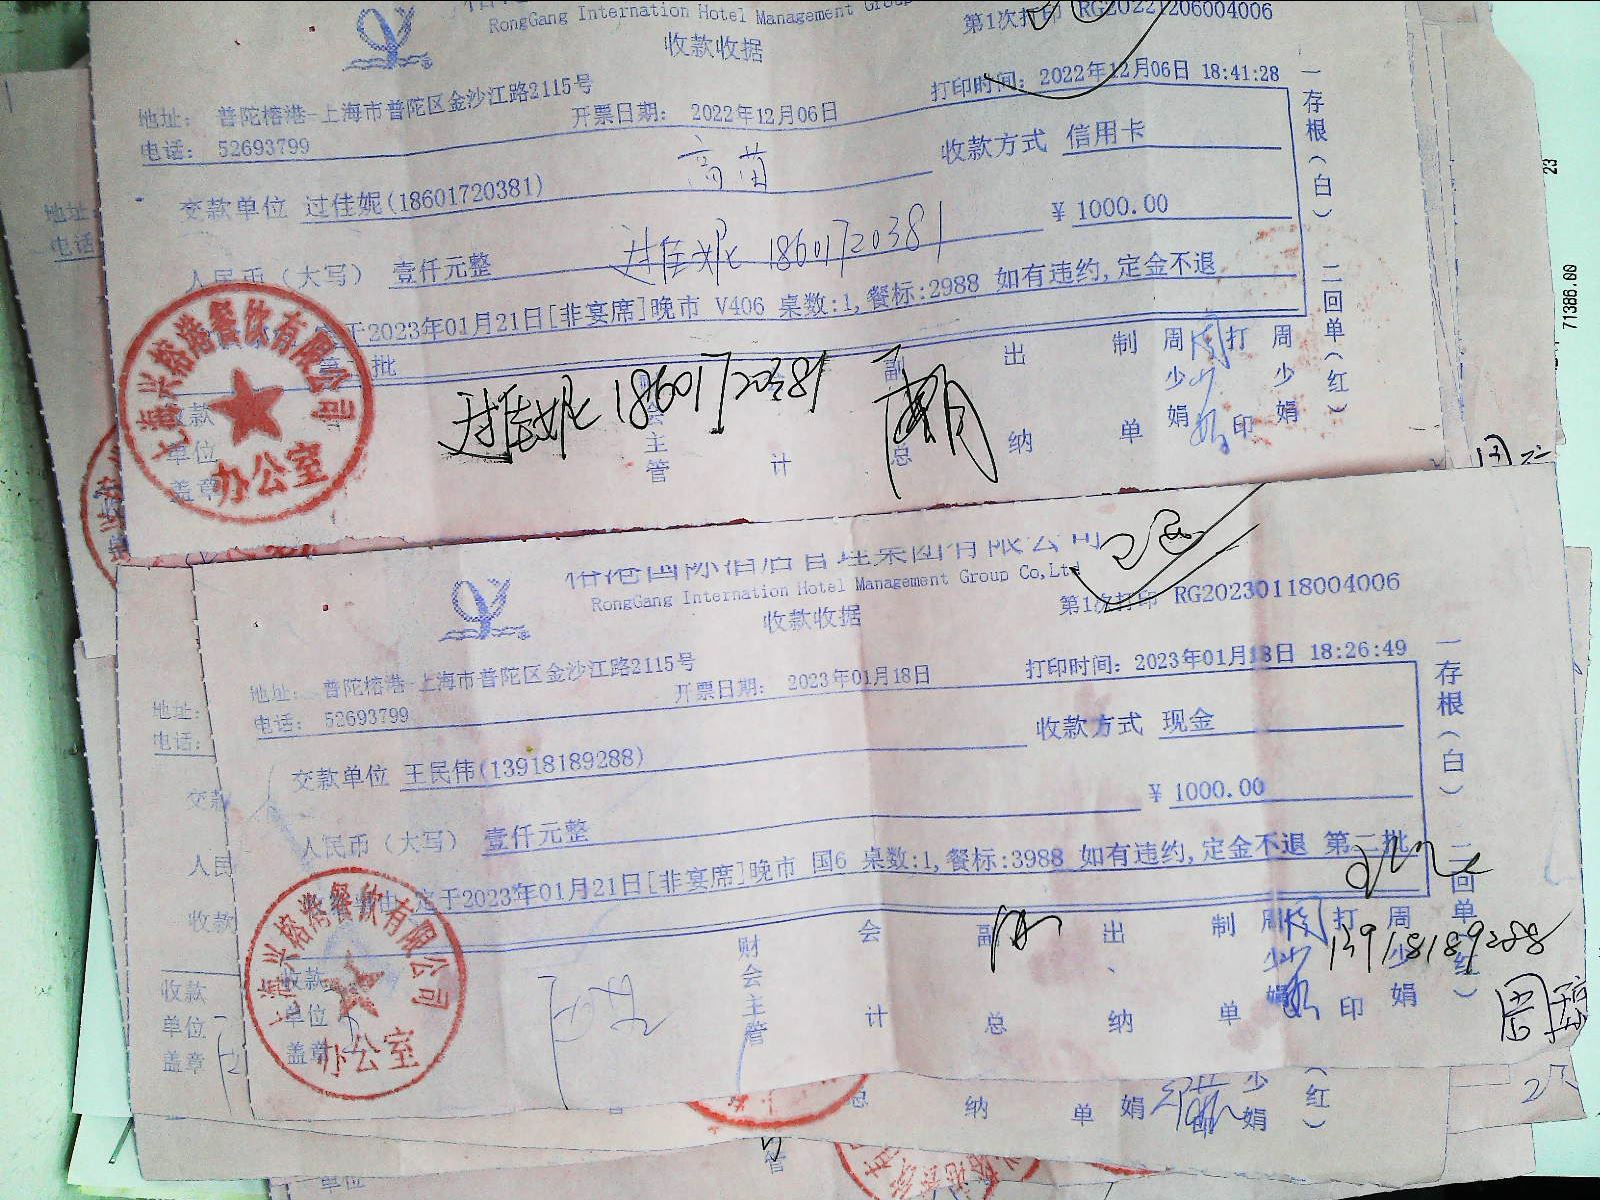 RongGang Internation Hotel Management Group
收款收据
第1次打印 RG20221206004006
地址: 普陀榕港-上海市普陀区金沙江路2115号
开票日期: 2022年12月06日
打印时间: 2022年12月06日 18:41:28
电话: 52693799
收款方式 信用卡
高苗
交款单位 过佳妮(18601720381)
¥ 1000.00
人民币(大写) 壹仟元整
过佳妮 18601720381
于2023年01月21日[非宴席]晚市 V406 桌数:1,餐标:2988 如有违约,定金不退
批
一存根(白) 二回单(红)
上海兴榕港餐饮有限公司
办公室
收款单位盖章
过佳妮 18601720381
会主管
计
副总
出纳
制单
周少娟
打印
周少娟
23
71386.00
榕港国际酒店管理集团有限公司
RongGang Internation Hotel Management Group Co,Ltd
收款收据
第1次打印 RG20230118004006
地址: 普陀榕港-上海市普陀区金沙江路2115号
开票日期: 2023年01月18日
打印时间: 2023年01月18日 18:26:49
电话: 52693799
收款方式 现金
交款单位 王民伟(13918189288)
¥ 1000.00
人民币(大写) 壹仟元整
定于2023年01月21日[非宴席]晚市 国6 桌数:1,餐标:3988 如有违约,定金不退 第二批
一存根(白) 二回单(红)
上海兴榕港餐饮有限公司
办公室
收款单位盖章
财会主管
会计
副总
出纳
制单
周少娟
打印
周少娟
13918189288
地址:
电话:
交款
人民
收款
收款
单位
盖章
总
纳
单
娟
少娟
(红)
单位